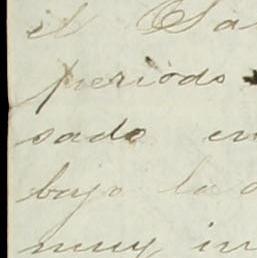 el Sa
periodo
sado en
bajo la d
muy in